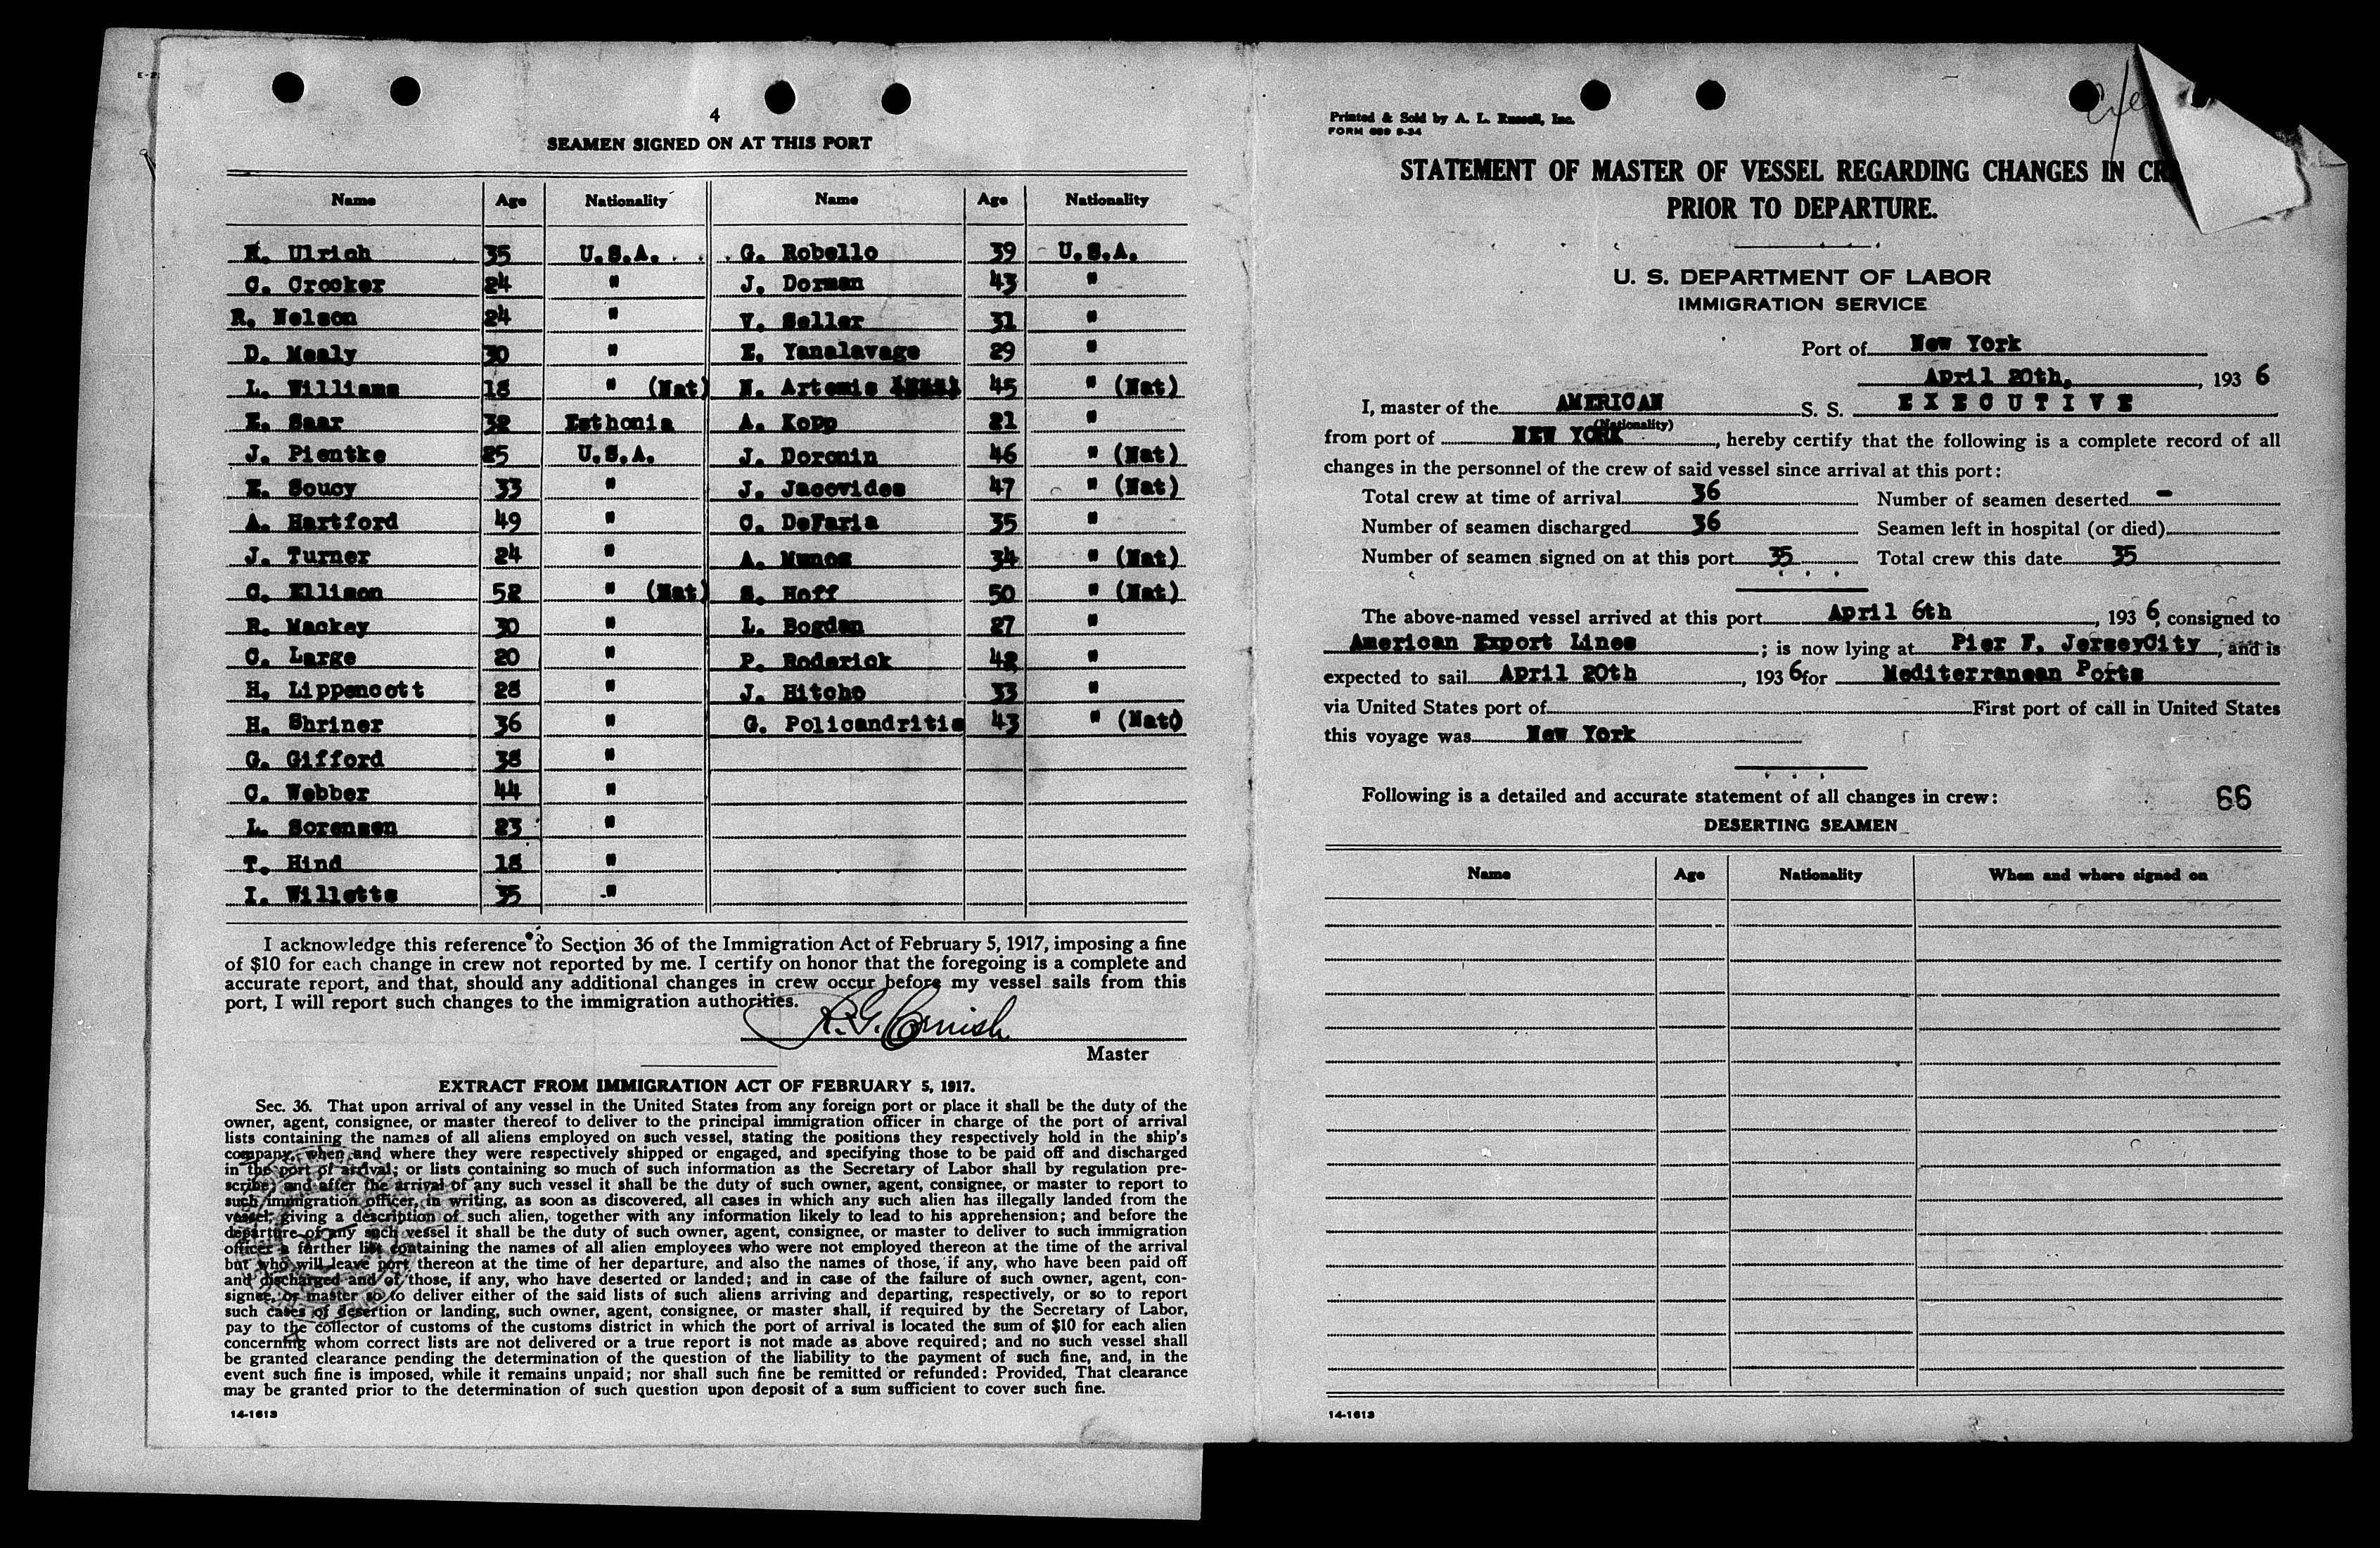 4
SEAMEN SIGNED ON AT THIS PORT
Name Age Nationality Name Age Nationality
H. Ulrich 35 U.S.A. G. Robello 39 U.S.A.
C. Crocker 24 " J. Dorman 43 "
R. Nelson 24 " V. Seller 31 "
D. Mealy 30 " E. Yanalavage 29 "
L. Williams 18 " (Nat) N. Artemis 45 " (Nat)
E. Saar 32 Esthonia A. Kopp 21 "
J. Pientke 25 U.S.A. J. Doronin 46 " (Nat)
E. Soucy 33 " J. Jacovides 47 " (Nat)
A. Hartford 49 " C. DeFaria 35 "
J. Turner 24 " A. Munos 34 " (Nat)
C. Ellison 52 " (Nat) S. Hoff 50 " (Nat)
R. Mackey 30 " L. Bogdan 27 "
C. Large 20 " P. Roderick 42 "
H. Lippencott 28 " J. Hitcho 33 "
H. Shriner 36 " G. Policandritis 43 " (Nat)
G. Gifford 38 "
C. Webber 44 "
L. Sorensen 23 "
T. Hind 18 "
I. Willetts 35 "
I acknowledge this reference to Section 36 of the Immigration Act of February 5, 1917, imposing a fine
of $10 for each change in crew not reported by me. I certify on honor that the foregoing is a complete and
accurate report, and that, should any additional changes in crew occur before my vessel sails from this
port, I will report such changes to the immigration authorities.
R. G. Cornish
Master
EXTRACT FROM IMMIGRATION ACT OF FEBRUARY 5, 1917.
Sec. 36. That upon arrival of any vessel in the United States from any foreign port or place it shall be the duty of the
owner, agent, consignee, or master thereof to deliver to the principal immigration officer in charge of the port of arrival
lists containing the names of all aliens employed on such vessel, stating the positions they respectively hold in the ship's
company, when and where they were respectively shipped or engaged, and specifying those to be paid off and discharged
in the port of arrival; or lists containing so much of such information as the Secretary of Labor shall by regulation pre-
scribe; and after the arrival of any such vessel it shall be the duty of such owner, agent, consignee, or master to report to
such immigration officer, in writing, as soon as discovered, all cases in which any such alien has illegally landed from the
vessel, giving a description of such alien, together with any information likely to lead to his apprehension; and before the
departure of any such vessel it shall be the duty of such owner, agent, consignee, or master to deliver to such immigration
officer a further list containing the names of all alien employees who were not employed thereon at the time of the arrival
but who will leave port thereon at the time of her departure, and also the names of those, if any, who have been paid off
and discharged and of those, if any, who have deserted or landed; and in case of the failure of such owner, agent, con-
signee, or master so to deliver either of the said lists of such aliens arriving and departing, respectively, or so to report
such cases of desertion or landing, such owner, agent, consignee, or master shall, if required by the Secretary of Labor,
pay to the collector of customs of the customs district in which the port of arrival is located the sum of $10 for each alien
concerning whom correct lists are not delivered or a true report is not made as above required; and no such vessel shall
be granted clearance pending the determination of the question of the liability to the payment of such fine, and, in the
event such fine is imposed, while it remains unpaid; nor shall such fine be remitted or refunded: Provided, That clearance
may be granted prior to the determination of such question upon deposit of a sum sufficient to cover such fine.
14-1613
Printed & Sold by A. L. Russell, Inc.
FORM 689 9-34
STATEMENT OF MASTER OF VESSEL REGARDING CHANGES IN CR
PRIOR TO DEPARTURE.
U. S. DEPARTMENT OF LABOR
IMMIGRATION SERVICE
Port of New York
April 20th, , 193 6
I, master of the AMERICAN S. S. EXECUTIVE
(Nationality)
from port of NEW YORK , hereby certify that the following is a complete record of all
changes in the personnel of the crew of said vessel since arrival at this port:
Total crew at time of arrival 36 Number of seamen deserted -
Number of seamen discharged 36 Seamen left in hospital (or died)
Number of seamen signed on at this port 35 Total crew this date 35
The above-named vessel arrived at this port April 6th , 193 6, consigned to
American Export Lines ; is now lying at Pier F. JerseyCity , and is
expected to sail April 20th , 193 6 for Mediterranean Ports
via United States port of First port of call in United States
this voyage was New York
Following is a detailed and accurate statement of all changes in crew: 66
DESERTING SEAMEN
Name Age Nationality When and where signed on
14-1613